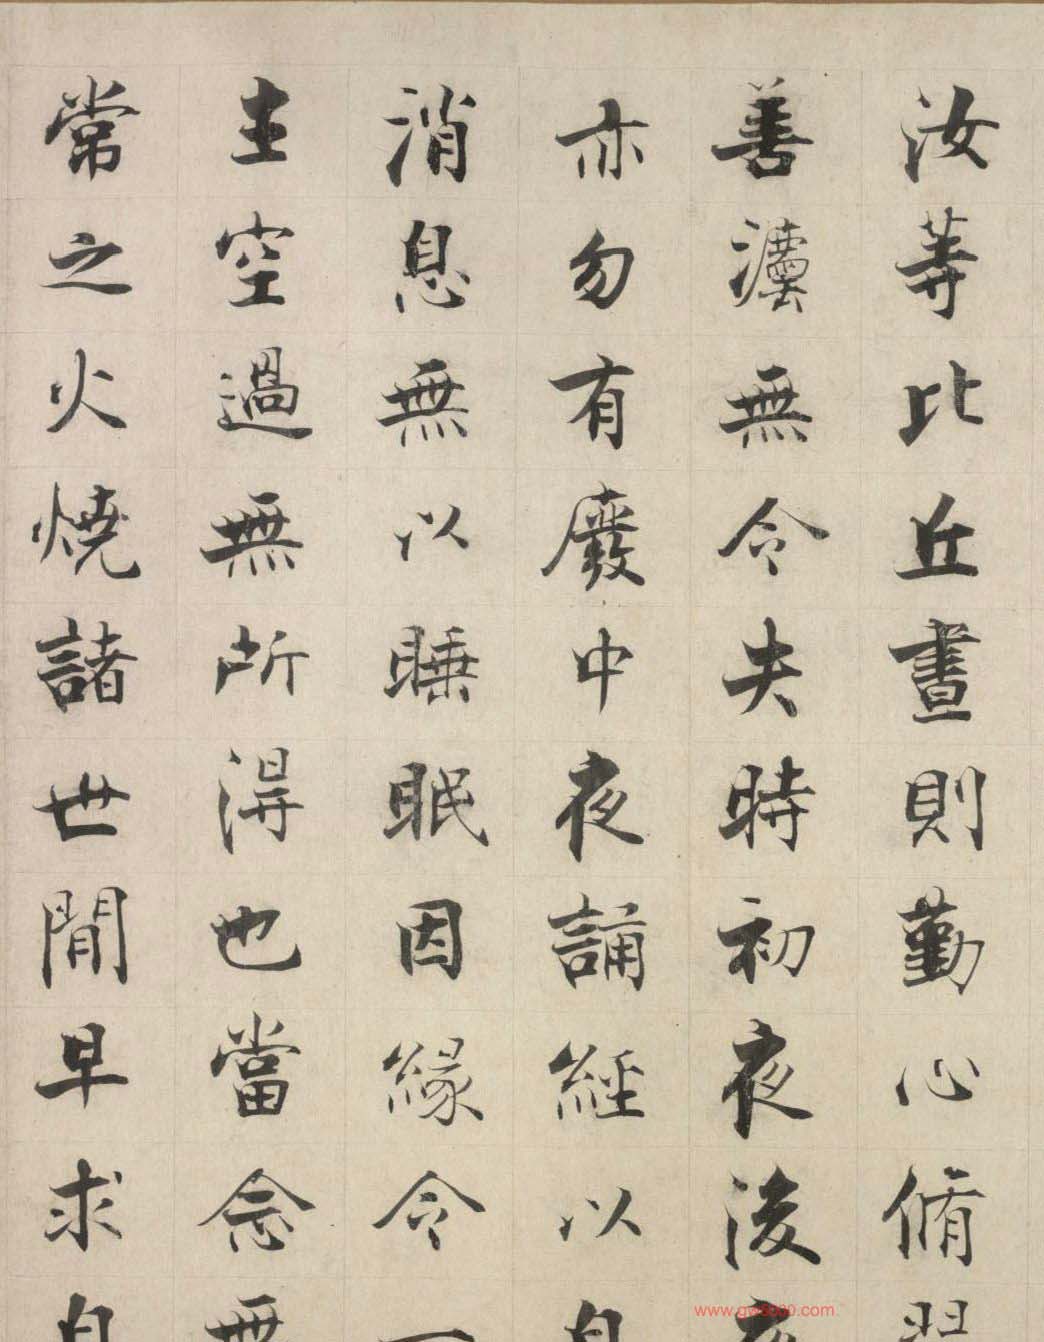 汝等比丘晝則勤心脩習
善灋無令失時初夜後夜
亦勿有廢中夜誦經以自
消息無以睡眠因緣令一
生空過無所得也當念無
常之火燒諸世間早求自
www.gw2000.com